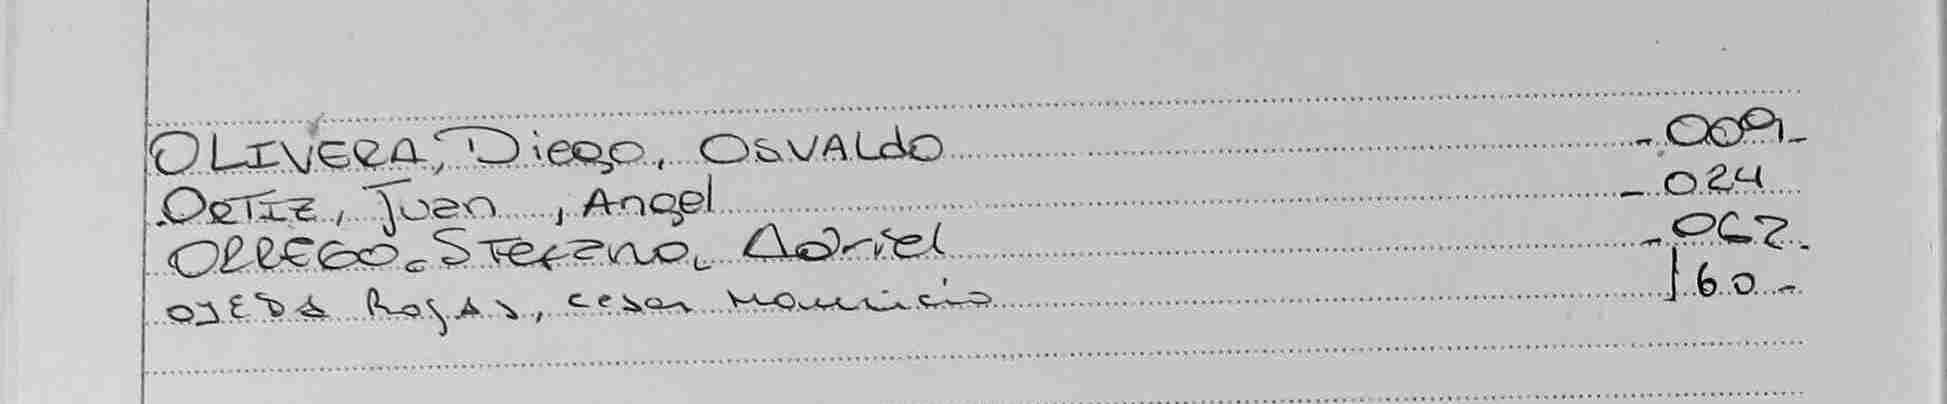 OLIVERA, Diego, OSVALdO -009-
ORTIZ, Juan, Angel -024
ORREGO, Stefano, Adriel -062.
OJEDA Rojas, cesar Mauricio 160-